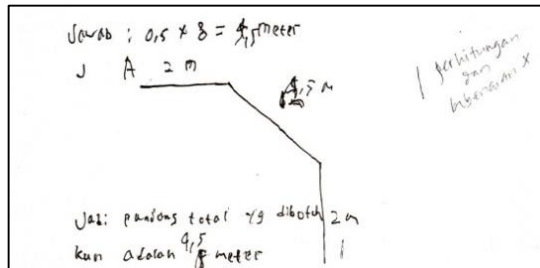 Jawab : 0,5 × 8 = 4,5 meter
J A 2 m
4,5 m
1 perhitungan
dan
kebenaran ×
Jadi panjang total yg dibutuh 2 m
kan adalah 4,5 meter